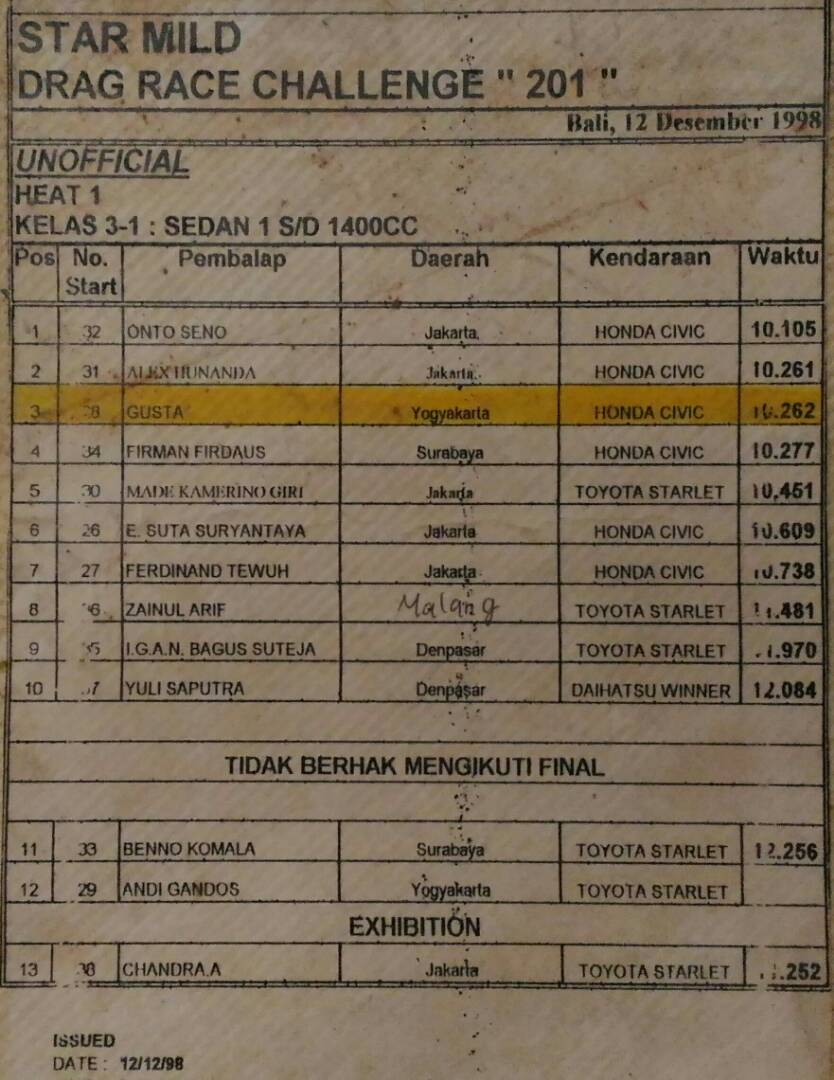 STAR MILD
DRAG RACE CHALLENGE " 201 "
Bali, 12 Desember 1998
UNOFFICIAL
HEAT 1
KELAS 3-1 : SEDAN 1 S/D 1400CC
Pos No. Start Pembalap Daerah Kendaraan Waktu
1 32 ONTO SENO Jakarta HONDA CIVIC 10.105
2 31 ALEX HUNANDA Jakarta HONDA CIVIC 10.261
3 GUSTA Yogyakarta HONDA CIVIC 10.262
4 34 FIRMAN FIRDAUS Surabaya HONDA CIVIC 10.277
5 30 MADE KAMERINO GIRI Jakarta TOYOTA STARLET 10.451
6 26 E. SUTA SURYANTAYA Jakarta HONDA CIVIC 10.609
7 27 FERDINAND TEWUH Jakarta HONDA CIVIC 10.738
8 ZAINUL ARIF Malang TOYOTA STARLET 11.481
9 I.G.A.N. BAGUS SUTEJA Denpasar TOYOTA STARLET
10 YULI SAPUTRA Denpasar DAIHATSU WINNER 12.084
TIDAK BERHAK MENGIKUTI FINAL
11 33 BENNO KOMALA Surabaya TOYOTA STARLET 12.256
12 29 ANDI GANDOS Yogyakarta TOYOTA STARLET
EXHIBITION
13 CHANDRA.A Jakarta TOYOTA STARLET
ISSUED
DATE : 12/12/98